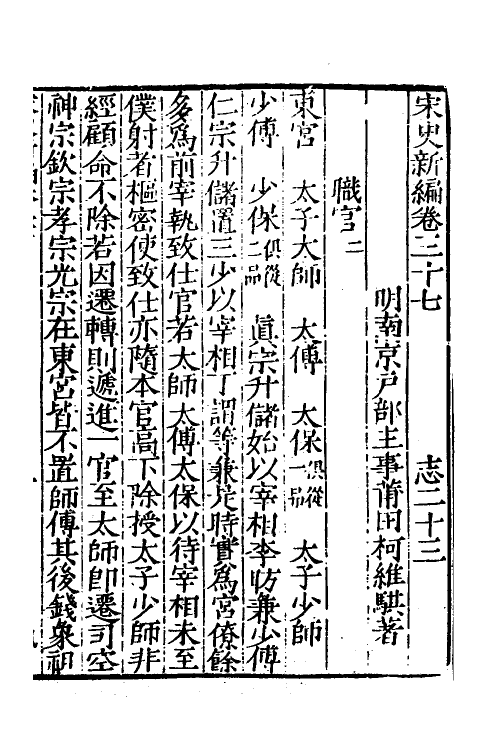 宋史新編卷三十七 志二十三
明南京戶部主事莆田柯維騏著
職官二
東宮 太子太師 太傅 太保俱從一品 太子少師
少傅 少保俱從二品 真宗升儲始以宰相李昉兼少傅
仁宗升儲置三少以宰相丁謂等兼是時實爲宮僚餘
多爲前宰執致仕官若太師太傅太保以待宰相未至
僕射者樞密使致仕亦隨本官高下除授太子少師非
經顧命不除若因遷轉則遞進一官至太師卽遷司空
神宗欽宗孝宗光宗在東宮皆不置師傅其後錢象祖